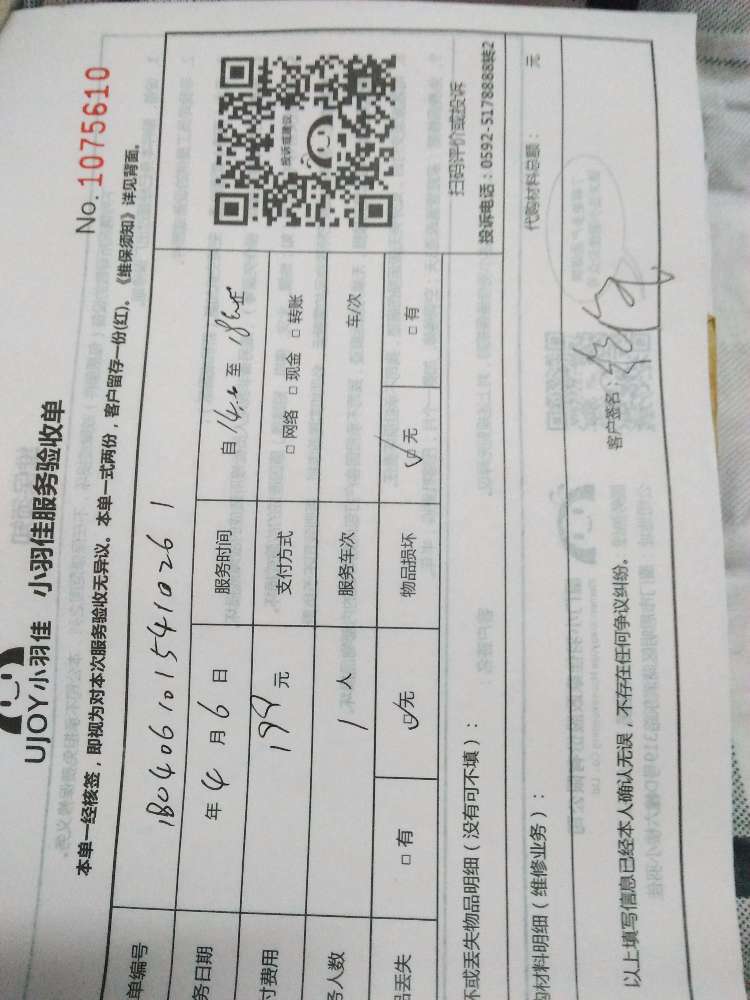 UJOY小羽佳 小羽佳服务验收单
No. 1075610
本单一经核签，即视为对本次服务验收无异议。本单一式两份，客户留存一份(红)。《维保须知》详见背面。
单编号 180406101541026 1
务日期 年 4 月 6 日 服务时间 自 14:00 至 18:00
付费用 199 元 支付方式 □ 网络 □ 现金 □ 转账
务人数 1 人 服务车次 车/次
品丢失 □ 有 □ 无 物品损坏 □ 无 □ 有
投诉或建议
扫码评价或投诉
投诉电话：0592-5178888转2
坏或丢失物品明细（没有可不填）：
购材料明细（维修业务）： 代购材料总额： 元
以上填写信息已经本人确认无误，不存在任何争议纠纷。 客户签名：